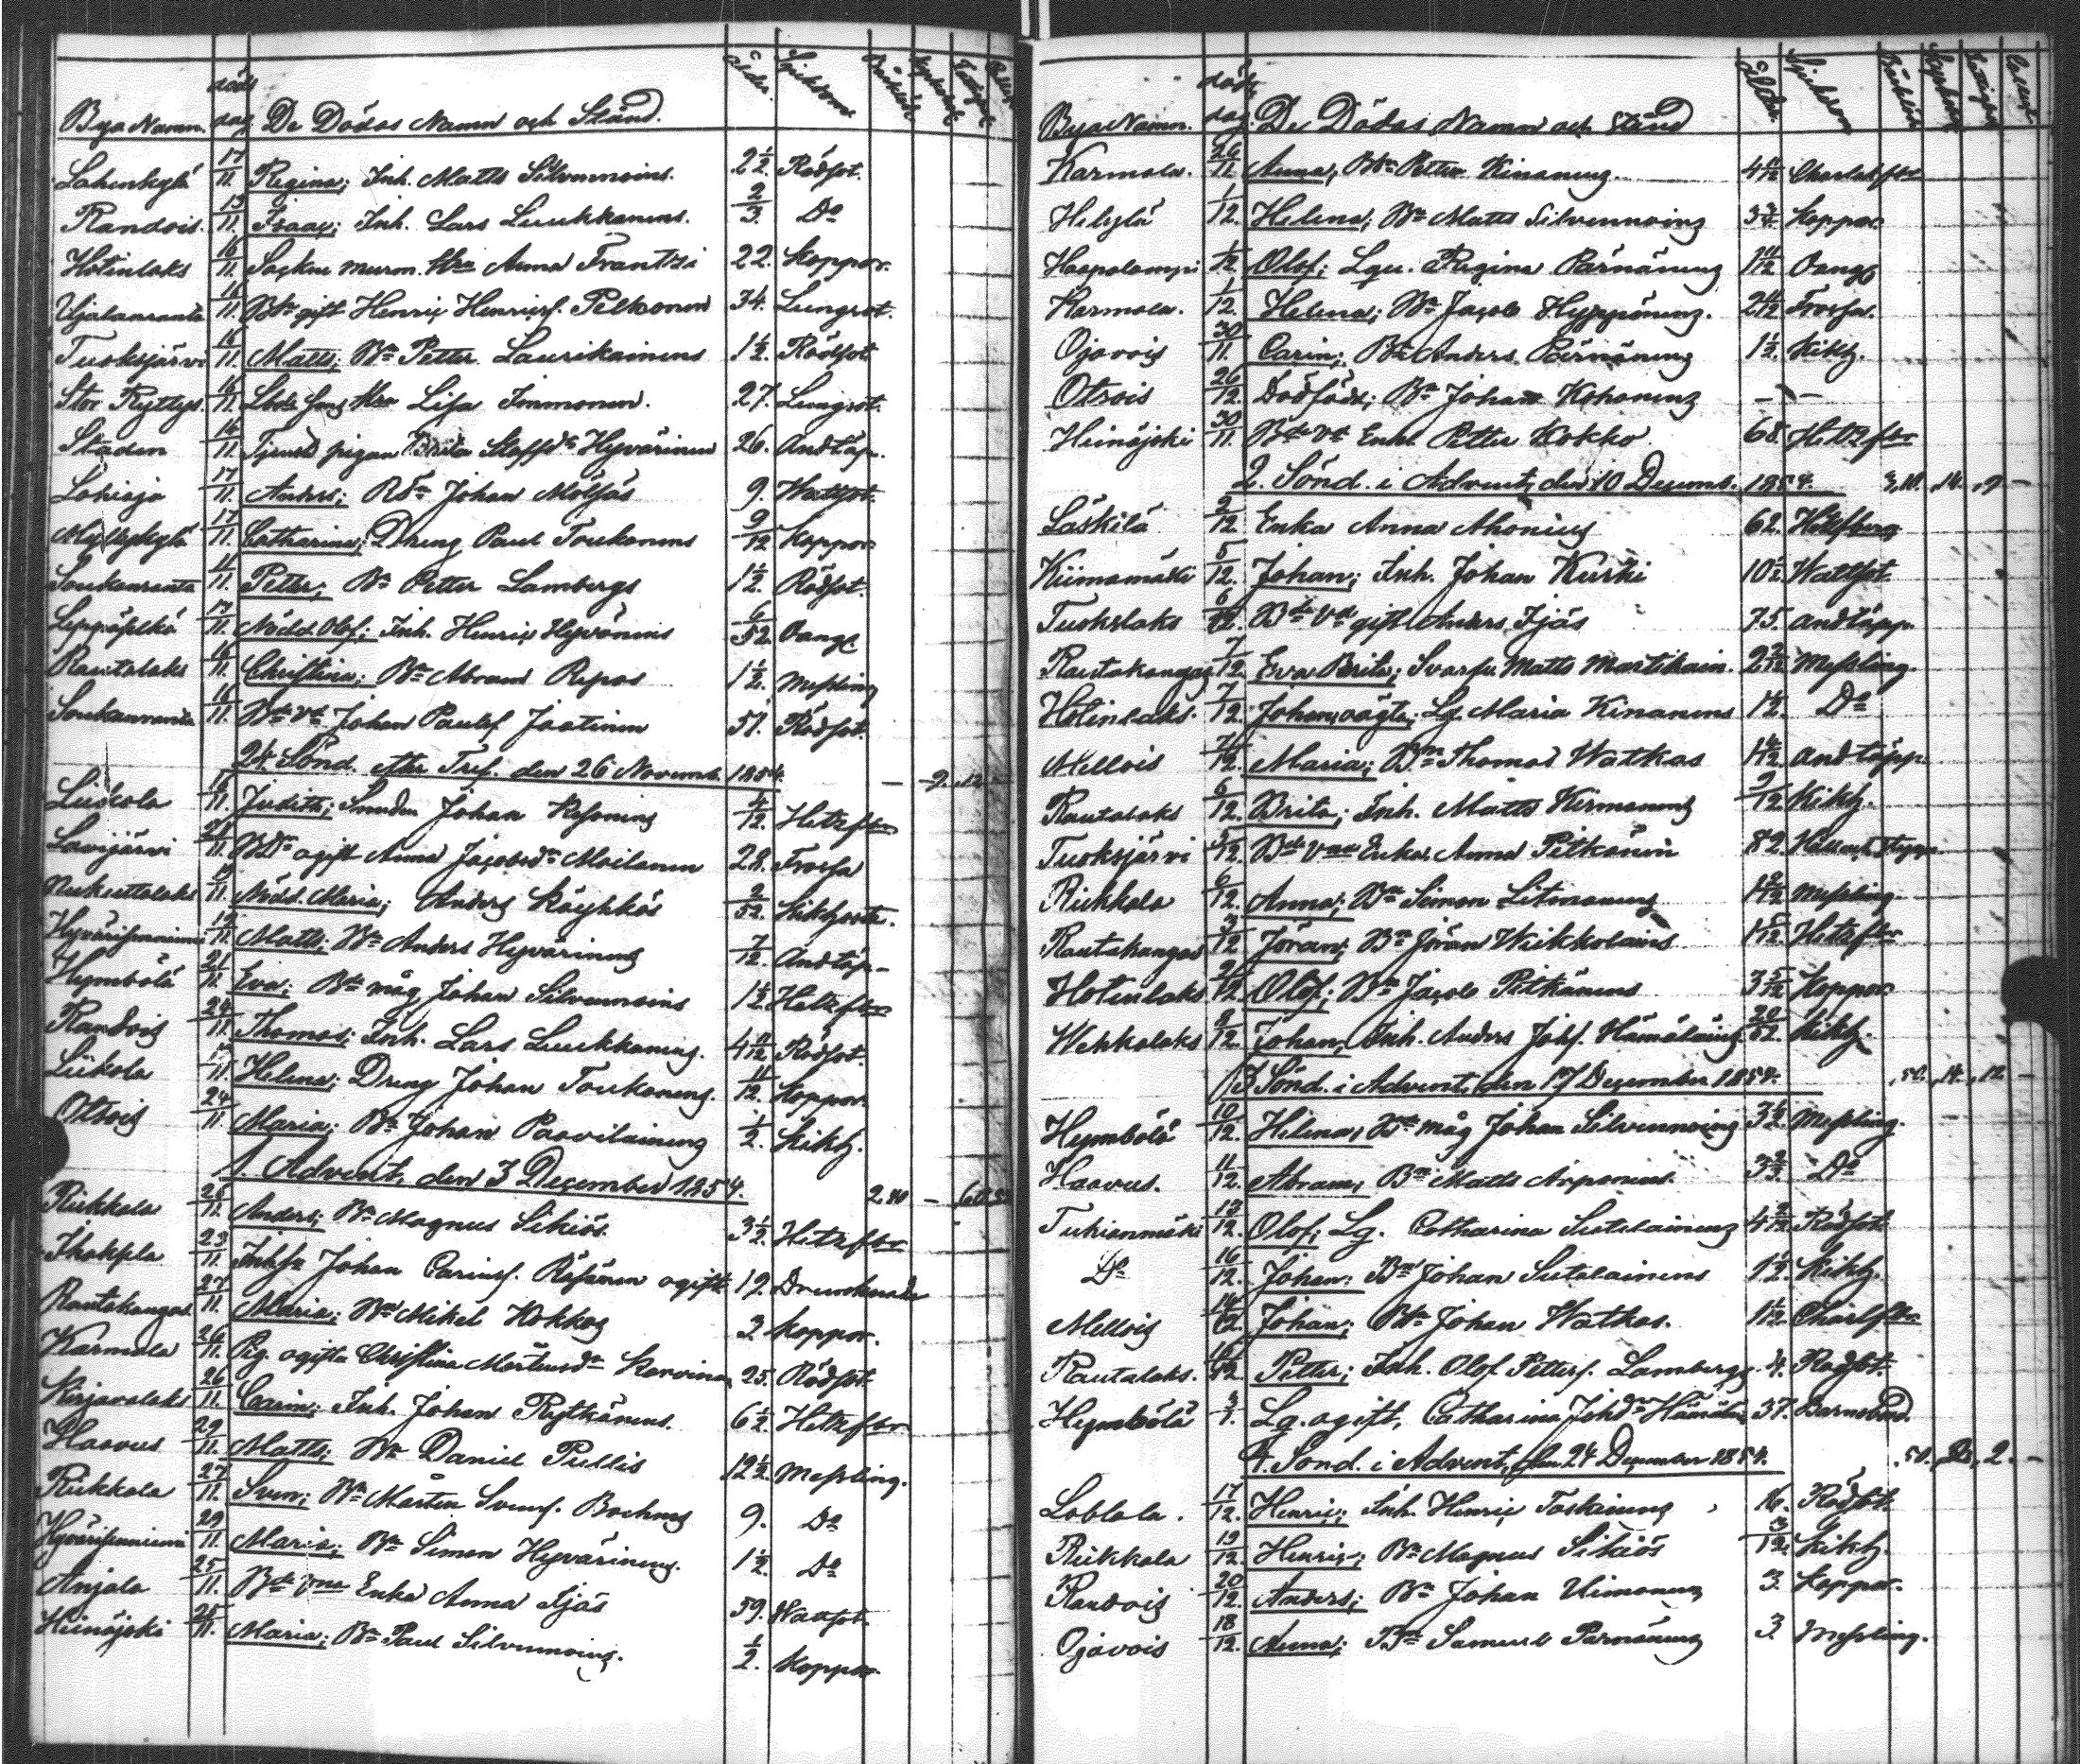 Bya Namn. döds dag De Dödas Namn och Stånd. ålder. Sjukdom
Lahenkylä 17/11. Regina; Inh. Matts Silvennoins. 2 1/2. Rödsot.
Randois. 13/11. Isaac; Inh. Lars Luukkanens. 2/3. Do
Hotinlaks 16/11. Sockne murm. Hra Anna Frantzi 22. Koppor.
16/11. Bde gift Henric Henricss. Pelkonen 34. Lungsot.
Tuoksjärvi 16/11. Matts; Bn Petter Laurikainens 1 1/2. Rödsot
Stor Rytty. 16/11. Hra Lisa Immonen. 27. Lungsot.
Staden 14/11. Tjenst pigan Brita Staffsdr Hyvärinen 26. Andtäp.
Lohioja 17/11. Anders; Johan Mölsäs 9. Wattsot.
Myllykylä 17/11. Catharina; Dreng Paul Toukanens 9/12 Koppor
Soukanranta 11/11. Petter; Bn Petter Lambergs 1 1/2. Rödsot.
Leppäselkä 17/11. Nödd. Olof; Inh. Henric Hyvönens 6/52. Oange
Rautalaks 16/11. Christina; Bn Abram Repos 1 1/2. Messling
Soukanranta 16/11. Bde vd Johan Paulss. Jaatinen 51. Rödsot.
24 Sönd. efter Tref. den 26 Novemb. 1854. — 9. 12
Liikola 18/11. Judith; Smeden Johan 4/12. Hetzfbr
Lavijärvi 21/11. ogift Anna Jacobsdr Moilanen 28. Frossa
Nukuttalaks 19/11. Nöd. Maria; Anders Käyhkös 2/52. Kikhosta.
Hyvärisenniemi 19/11. Matts; Bn Anders Hyvärinens 7/12. Andtäp.
Hymbölä 21/11. Eva; Bde måg Johan Silvennoins 1 1/2 Hetzfbr
Randois 24/11. Thomas; Inh. Lars Luukkanens. 4 11/12 Rödsot.
Liikola 17/11. Helena; Dreng Johan Toukanens. 11/12. Koppor.
Otrois 24/11 Maria; Bn Johan Paavilainens 1/2. Kikh.
1. Advent, den 3 December 1854.
Riekkala 26/11. Anders; Bn Magnus Sikiös. 3 1/2. Hetzfbr
Ihaksela 23/11. Johan Carinss. Räsänen ogift 19. Drunknade
Rautakangas 27/11. Maria; Bn Mikel Kokkos 3. Koppor.
Karmala 26/11. Pig. ogifta Christina Mårtensdr Karvinen 25. Rödsot
Kirjavalaks 26/11. Carin; Inh. Johan Pitkänens. 6 1/2. Hetzfbr
Haavus 29/11. Matts; Bn Daniel Pullis 12 1/2. Messling.
Riekkala 27/11. Sven; Bn Mårten Svenss. Bochms 9. Do
Hyvärisenniemi 29/11. Maria; Bn Simon Hyvärinens. 1 1/2. Do
Anjala 25/11. Bde vne Enka Anna Ijäs 59. Wattsot.
Heinäjoki 25/11. Maria; Bn Paul Silvennoins. 1/2. Koppor
Bya Namn. döds dag De Dödas Namn och Stånd ålder. Sjukdom
Karmala. 26/11. Anna; Bn Petter Kinanens. 4 11/12 Charlakfbr
Helylä 1/12. Helena; Bn Matts Silvennoins 3 3/4. Koppor.
Haapalampi 1/12. Olof; Lqu. Regina Pärnänens 1 11/12 Oange
Karmala. 1/12. Helena; Bn Jacob Hyppönens. 2 11/12 Frossa.
Ojavois 30/11. Carin; Bn Anders Pärnänens 1 1/2. Kikh.
Otrois 26/12. Dödfödd; Bn Johan Kohonens — —
Heinäjoki 30/11. Bde vd Enkl Petter Kokko. 68. Hetzfbr
2. Sönd. i Advent, den 10 Decemb. 1854.
Läskelä 2/12. Enka Anna Ahonius 62.
Kiimamäki 5/12. Johan; Inh. Johan Kurki 10 1/2 Wattsot.
Tuokslaks 6/12. Bde vd gift Anders Ijäs 75. Andtäpp.
Rautakangas 7/12. Eva Brita; Svarfv. Matts Martikain. 2 2/12 Messling.
Hotinlaks. 7/12. Johan, oägta; Lq. Maria Kinanens 1 1/2. Do
Mellois 7/12. Maria; Bn Thomas Watkas Andtäpp
Rautalaks 6/12. Brita; Inh. Matts Kermanens 9/12. Kikh.
Tuoksjärvi 5/12. Bde vne Enka Anna Pitkänen 82.
Riekkala 6/12. Anna; Bn Simon Litmanens Messling.
Rautakangas 3/12 Jöran; Bn Jöran Wiikkolains 1 5/12. Hetzfbr
Hotinlaks 9/12. Olof; Bn Jacob Pitkänens 3 5/12 Koppor
Wehkalaks 9/12. Johan; Inh. Anders Johs. Hämäläins 20/52. Kikh.
3 Sönd. i Advent, den 17 December 1854. ,50. ,14. ,12. —
Hymbölä 10/12. Helena; Bde måg Johan Silvennoins 3 1/2. Messling.
Haavus. 11/12. Abram; Bn Matts Arponens. 3 2/3. Do
Tukianmäki 13/12. Olof; Lq. Catharina Sutelainens 4 2/12 Rödsot
Do 16/12. Johan; Bn Johan Sutelainens 1 1/2. Kikh.
Mellois 14/12. Johan; Bn Johan Watkas. 1 1/2. Charlfbr
Rautalaks. 16/12. Petter; Inh. Olof Petterss. Lambergs 4. Rödsot.
Hymbölä Lq. ogift, Catharina Johdr Hämäläin 37. Barnsbörd.
4. Sönd. i Advent, den 24 December 1854.
Loblola. 17/12. Henric; Inh. Henric Toskainens 16. Rödsot
Riekkala 19/12. Henric; Bn Magnus Sikiös 3/12. Kikh.
Randois 20/12. Anders; Bn Johan Uimonens 3. Koppor.
Ojavois 18/12. Anna; Bn Samuel Pärnänens 3. Messling.